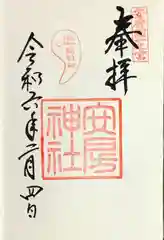 奉拝
安房神社
令和六年二月四日